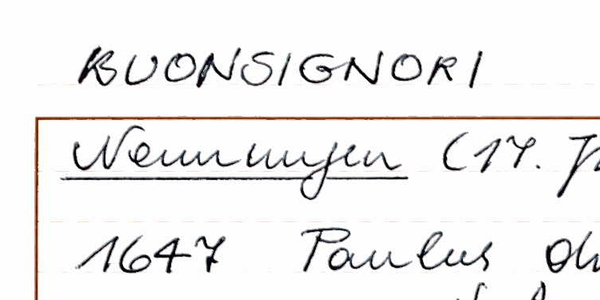 BUONSIGNORI
Nennungen (17.
1647 Paulus